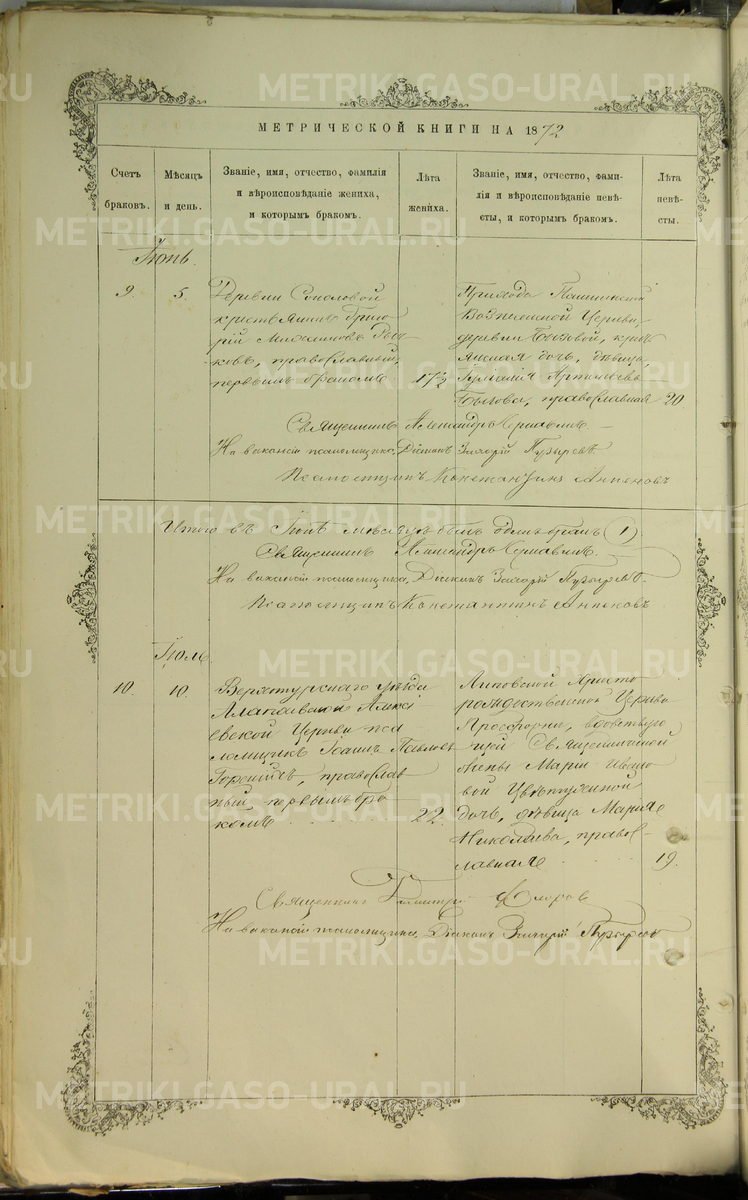 МЕТРИЧЕСКОЙ КНИГИ НА 1872
Счетъ браковъ.
Мѣсяцъ и день.
Званіе, имя, отчество, фамилія и вѣроисповѣданіе жениха, и которымъ бракомъ.
Лѣта жениха.
Званіе, имя, отчество, фамилія и вѣроисповѣданіе невѣсты, и которымъ бракомъ.
Лѣта невѣсты.
Іюнь.
9.
5.
Деревни Соколовой
крестьянинъ Григо
рій
православный,
первымъ бракомъ
17½
Прихода
Вознесенской Церкви,
деревни Бызовой, крес
янская дочь, дѣвица,
православная 20
Священникъ Александръ
На вакансіи псаломщика, Діаконъ Захарій Пузыревъ
Псаломщикъ Константинъ
Итого въ Іюнѣ мѣсяцѣ былъ одинъ бракъ (1)
Священникъ Александръ
На вакансіи псаломщика, Діаконъ Захарій Пузыревъ
Псаломщикъ Константинъ
Іюль
10.
10.
Верхотурскаго уѣзда
Алапаевской Алексі
евской Церкви пса
ломщикъ Іоаннъ Павловъ
православ
ный, первымъ бра
комъ
22.
Липовской Христо
рождественской Церкви
Просфорни, вдовствую
щей Священнической
жены Маріи
вой
дочь, дѣвица Марія
Николаева, право
славная
19.
Священникъ Димитрій Флоровъ
На вакансіи псаломщика, Діаконъ Захарій Пузыревъ
METRIKI.GASO-URAL.RU